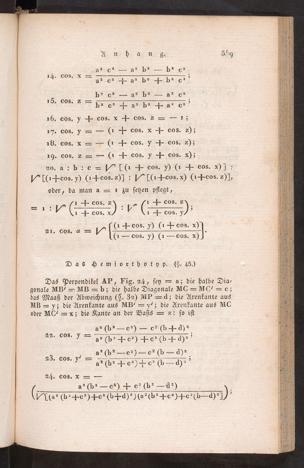 Anhang. 359
14. cos. x = (a² c² — a² b² — b² c²) / (a² c² + a² b² + b² c²);
15. cos. z = (b² c² — a² b² — a² c²) / (b² c² + a² b² + a² c²);
16. cos. y + cos. x + cos. z = — 1;
17. cos. y = — (1 + cos. x + cos. z);
18. cos. x = — (1 + cos. y + cos. z);
19. cos. z = — (1 + cos. y + cos. x);
20. a : b : c = √[(1 + cos. y) (1 + cos. x)] :
√[(1+cos. y) (1+cos. z)] : √[(1+cos. x) (1+cos. z)],
oder, da man a = 1 zu setzen pflegt,
= 1 : √((1 + cos. z) / (1 + cos. x)) : √((1 + cos. z) / (1 + cos. y)).
21. cos. α = √[((1 + cos. y) (1 + cos. x)) / ((1 — cos. y) (1 — cos. x))].
Das Hemiorthotyp. (§. 45.)
Das Perpendikel AP, Fig. 24, sey = a; die halbe Dia-
gonale MB' = MB = b; die halbe Diagonale MC = MC' = c;
das Maaß der Abweichung (§. 32) MP = d; die Axenkante aus
MB = y; die Axenkante aus MB' = y'; die Axenkante aus MC
oder MC' = x; die Kante an der Basis = z: so ist
22. cos. y = (a² (b² — c²) — c² (b + d)²) / (a² (b² + c²) + c² (b + d)²);
23. cos. y' = (a² (b² — c²) — c² (b — d)²) / (a² (b² + c²) + c² (b — d)²);
24. cos. x = —
((a² (b² — c²) + c² (b² — d²)) / √[(a² (b² + c²) + c² (b + d)²) (a² (b² + c²) + c² (b — d)²)]);